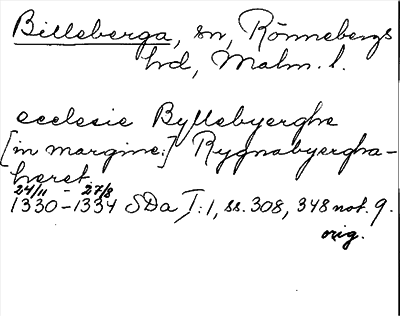 Billeberga, sn, Rönnebergs
hd, Malm. l.
ecclesie Byllebyerghe
[in margine:] Rygnabyergha-
heret
24/11 - 27/8
1330-1334 SDa I:1, ss. 308, 348 not. 9.
orig.